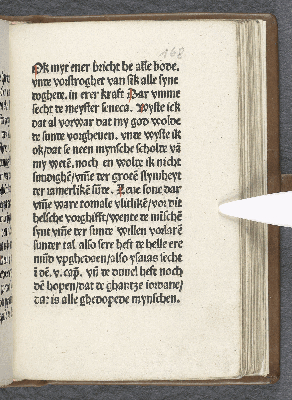 168
Ok myt ener bricht he alle bode.
vnde vorstroghet van sik alle syne
doghede. in erer kraft Dar vmme
secht de meyster seneca. Wyste ick
dat al vorwar dat my god wolde
de sunde vorgheuen. vnde wyste ik
ok/dat se neen mynsche scholde vā
my wetē. noch en wolde ik nicht
sundighē/vm̄e der grotē stynheyt
der iamerlikē sūde. Leue sone dar
vm̄e ware to male vlitlikē/vor dit
helsche vorghifft/wente de mīschē
synt vm̄e der sunde willen vorlarē
sunder tal also sere heft de helle ere
mūd vpghedaen/also ysaias secht
ī dē. v. cap. vn̄ de duuel heft noch
dē hopen/dat de ghantze iordane/
dat is alle ghedopede mynschen.